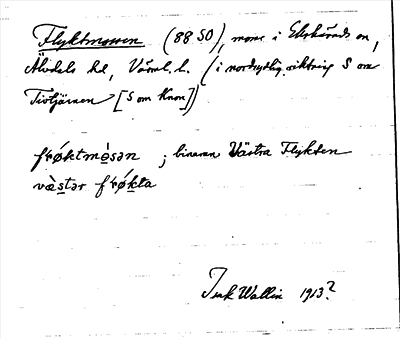 Flyktmossen (88 SO), mosse i Ekshärads sn,
Älvdals hd, Värml. l. (i nordsydlig riktning S om
Tistjärnen [S om Knon])
frǿktmè̱sən ; binamn Västra Flykten
væ̀stər frǿkta
Jerk Wallin 1913?